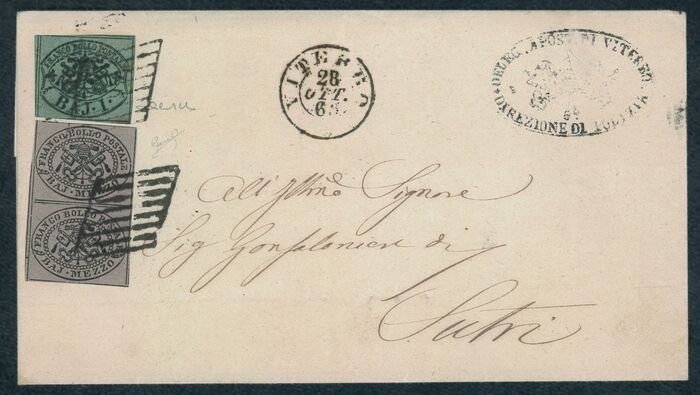 FRANCO BOLLO POSTALE
BAJ. 1.
FRANCO BOLLO POSTALE
BAJ. MEZZO
FRANCO BOLLO POSTALE
BAJ. MEZZO
VITERBO
28
OTT.
63
DELEG. APOST. DI VITERBO
DIREZIONE DI POLIZIA
All' Illmo Signore
Sig Gonfaloniere di
Sutri